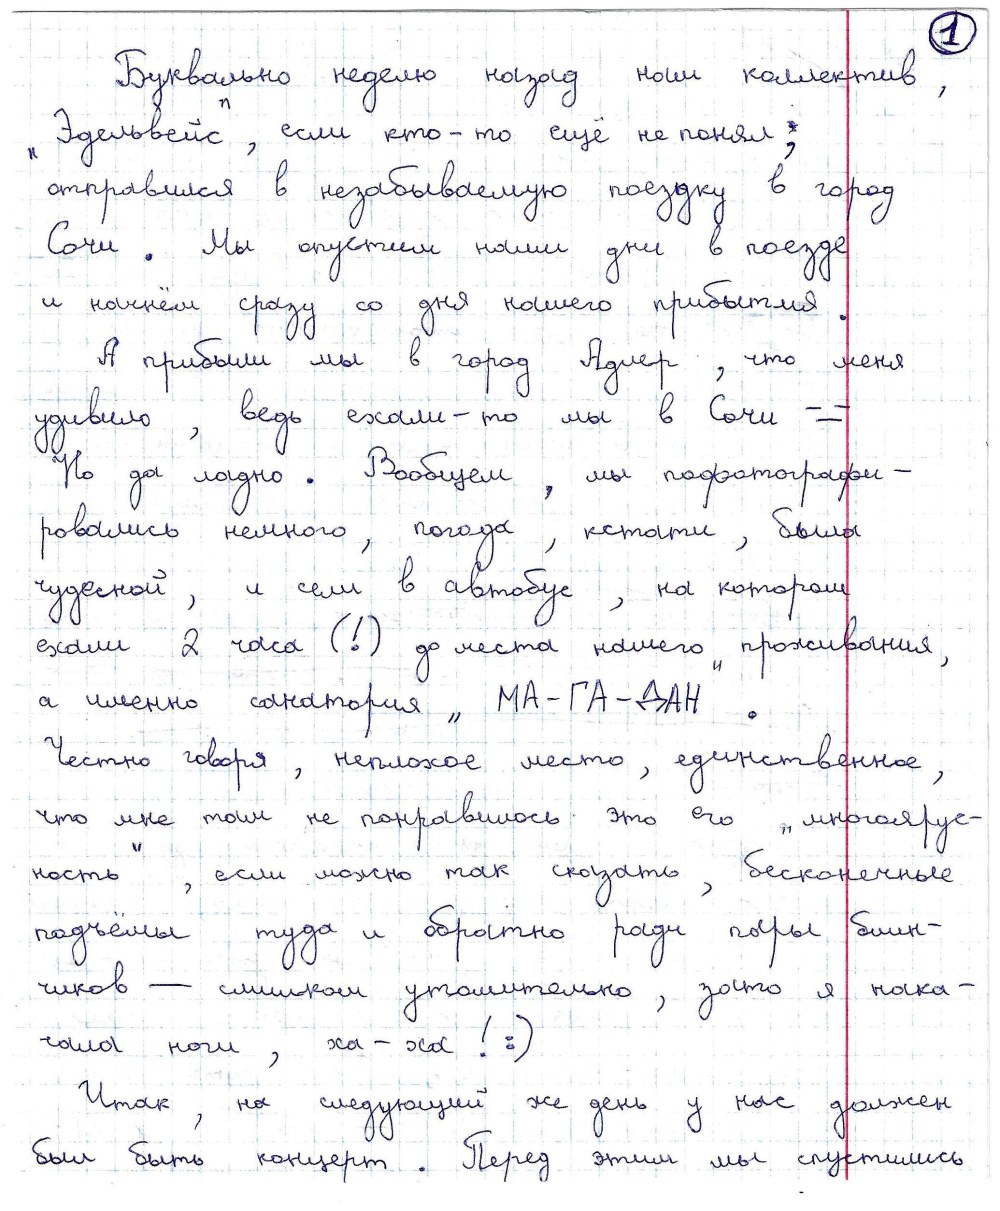 1
Буквально неделю назад наш коллектив,
„Эдельвейс", если кто-то ещё не понял;
отправился в незабываемую поездку в город
Сочи. Мы опустим наши дни в поезде
и начнём сразу со дня нашего прибытия.
А прибыли мы в город Адлер, что меня
удивило, ведь ехали-то мы в Сочи =
Но да ладно. Вообщем, мы пофотографи-
ровались немного, погода, кстати, была
чудесной, и сели в автобус, на котором
ехали 2 часа (!) до места нашего проживания,
а именно санатория „МА-ГА-ДАН".
Честно говоря, неплохое место, единственное,
что мне там не понравилось это его „многоярус-
ность", если можно так сказать, бесконечные
подъёмы туда и обратно ради пары блин-
чиков — слишком утомительно, зато я нака-
чала ноги, ха-ха! :)
Итак, на следующий же день у нас должен
был быть концерт. Перед этим мы спустились